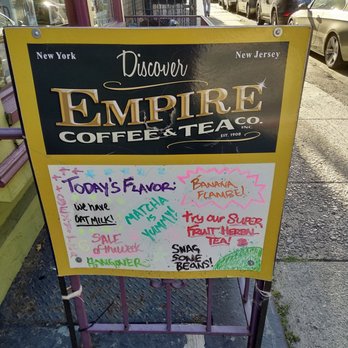 New York
New Jersey
Discover
EMPIRE
COFFEE & TEA CO.
INC.
EST. 1908
TODAY'S FLAVOR:
BANANA
FLAMBE!
we have
OAT MILK!
MATCHA
is
YUMMY!
try our SUPER
FRUIT HERBAL
TEA!
SALE
of the week
HANGOVER
SWAG
SOME
BEANS!